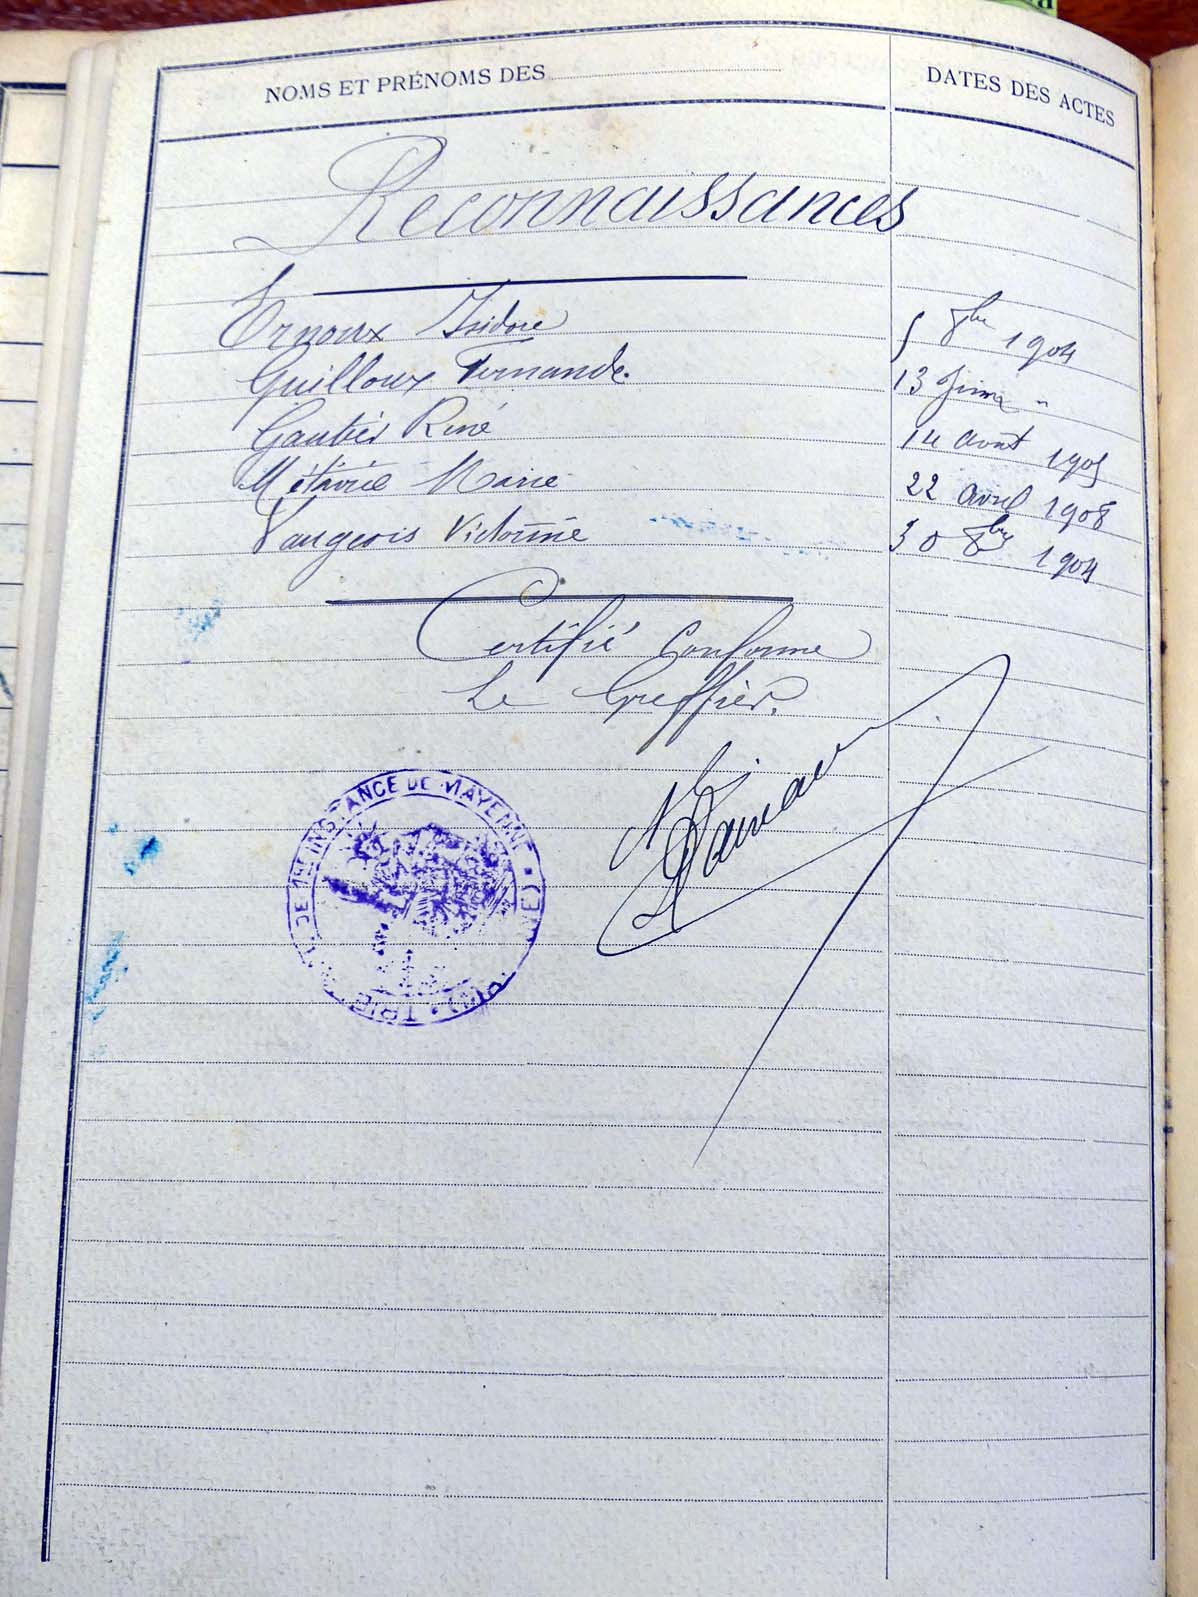 NOMS ET PRÉNOMS DES
DATES DES ACTES
Reconnaissances
Ernoux Isidore 5 1904
Guilloux Fernande. 13 "
Gautier René 14 août 1905
Métairie Marie 22 avril 1908
Vaugeois Victorine 30 8bre 1904
Certifié Conforme
Le Greffier.
DE 1RE INSTANCE DE MAYENNE